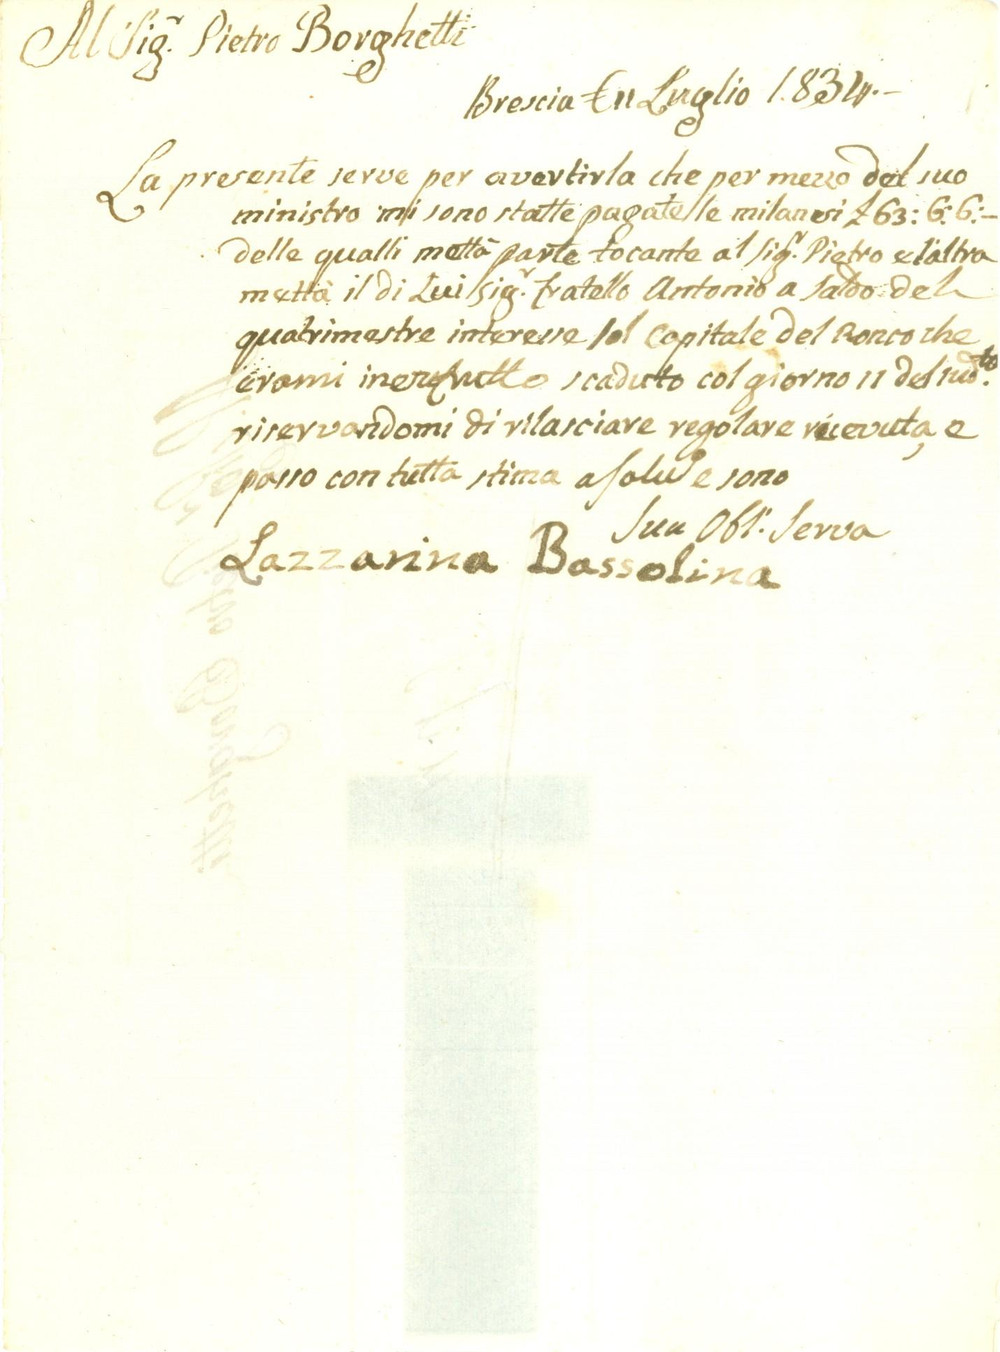 Al Sig.r Pietro Borghetti
Brescia li 11 Luglio 1834.-
La presente serve per avertirla che per mezzo del suo
ministro mi sono statte pagate le milanesi £ 63: 6: 6:-
delle qualli mettà parte tocante al Sig.r Pietro e l'altra
mettà il di Lui Sig.r fratello Antonio a Saldo del
quatrimestre interesse sol Capitale del Ronco che
erami scaduto col giorno 11 del sud.to
riservandomi di rilasciare regolare ricevuta, e
passo con tutta stima a e sono
Sua Obl.a Serva
Lazzarina Bassolina